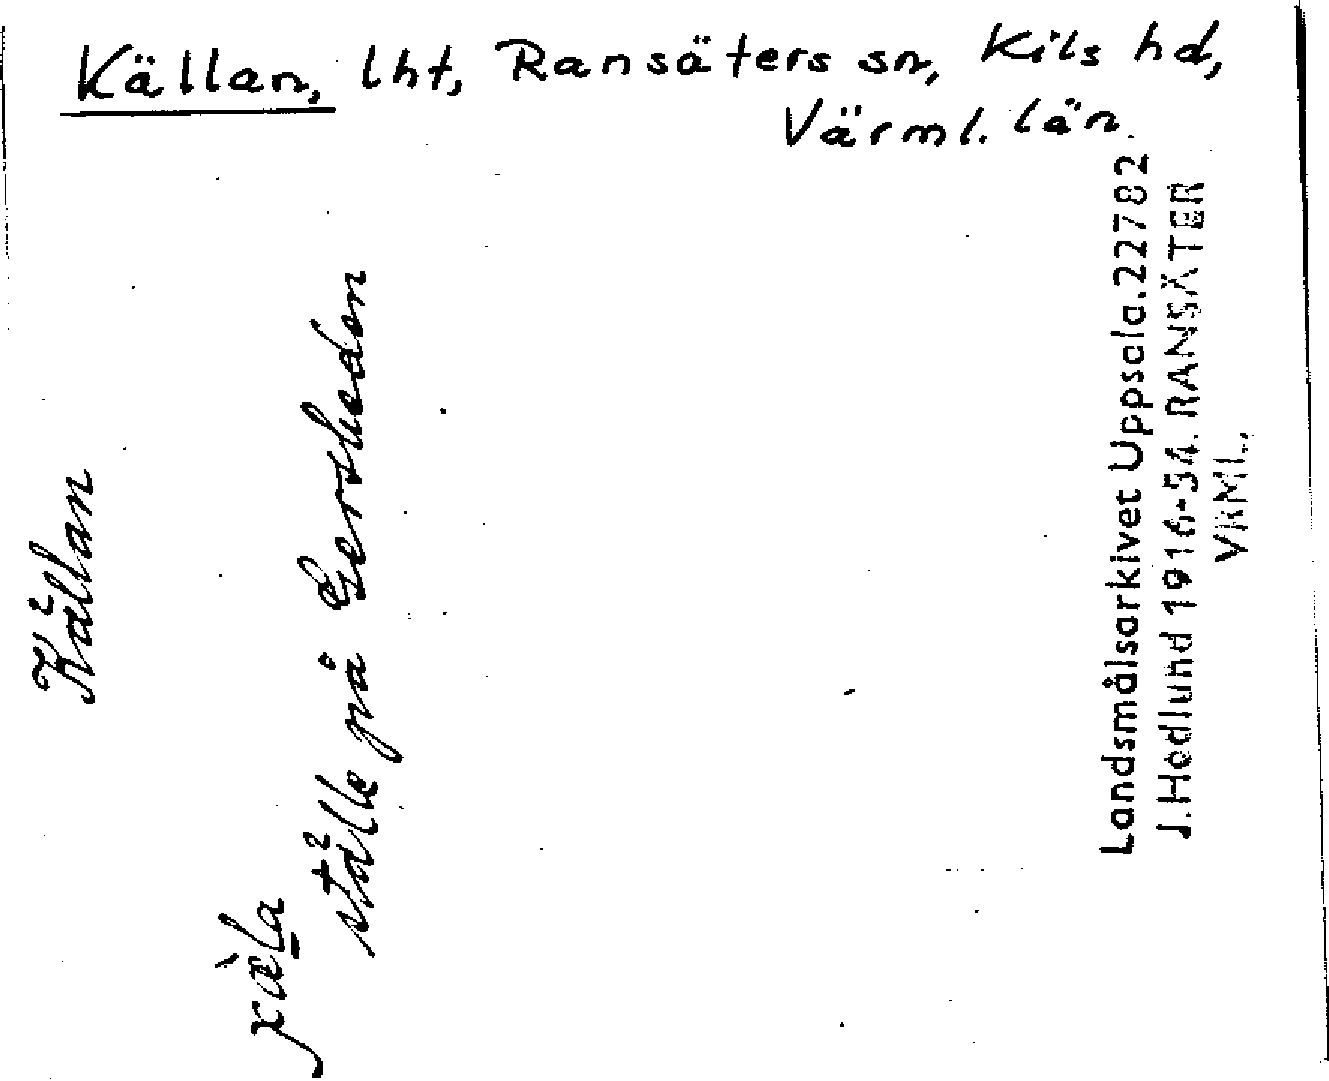 Källan, lht, Ransäters sn, Kils hd,
Värml. län
Källan
ställe på Gersheden
Landsmålsarkivet Uppsala.22782
J.Hedlund 1916-34. RANSÄTER
VRML.